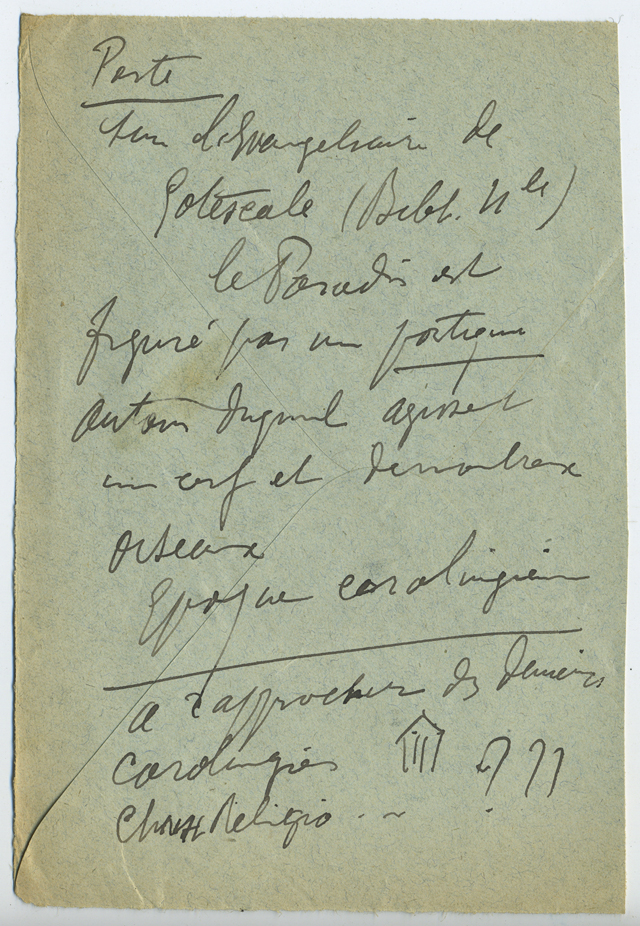 Porte
sur l'Evangeliaire de
Gotescale (Bibl. Nle)
le Paradis est
figuré par un portique
autour duquel agissent
un cerf et de nombreux
oiseaux
Epoque carolingienne
a rapprocher des deniers
carolingiens ???
Christ Religio . ~